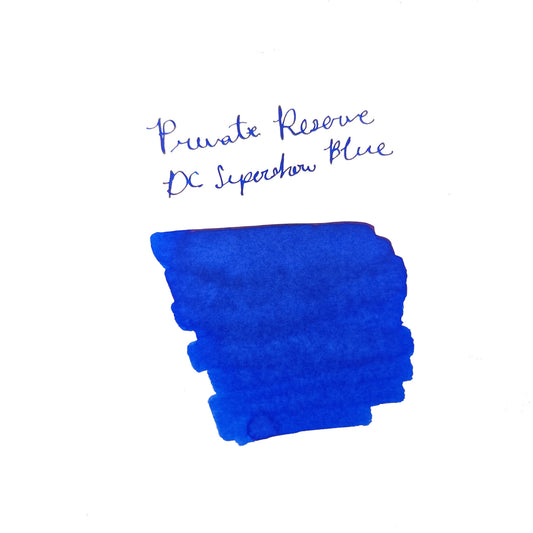 Private Reserve
DC Supershow Blue